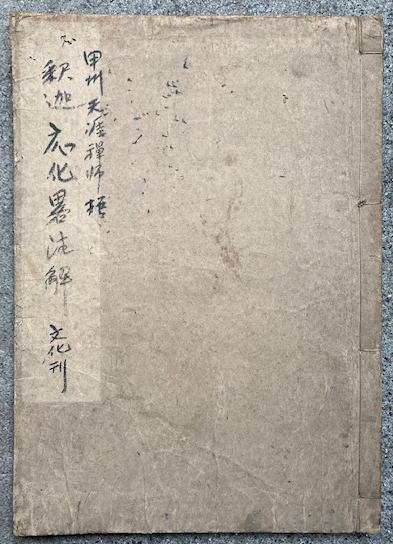 甲州天涯禅師
釈迦応化畧注解 文化刊